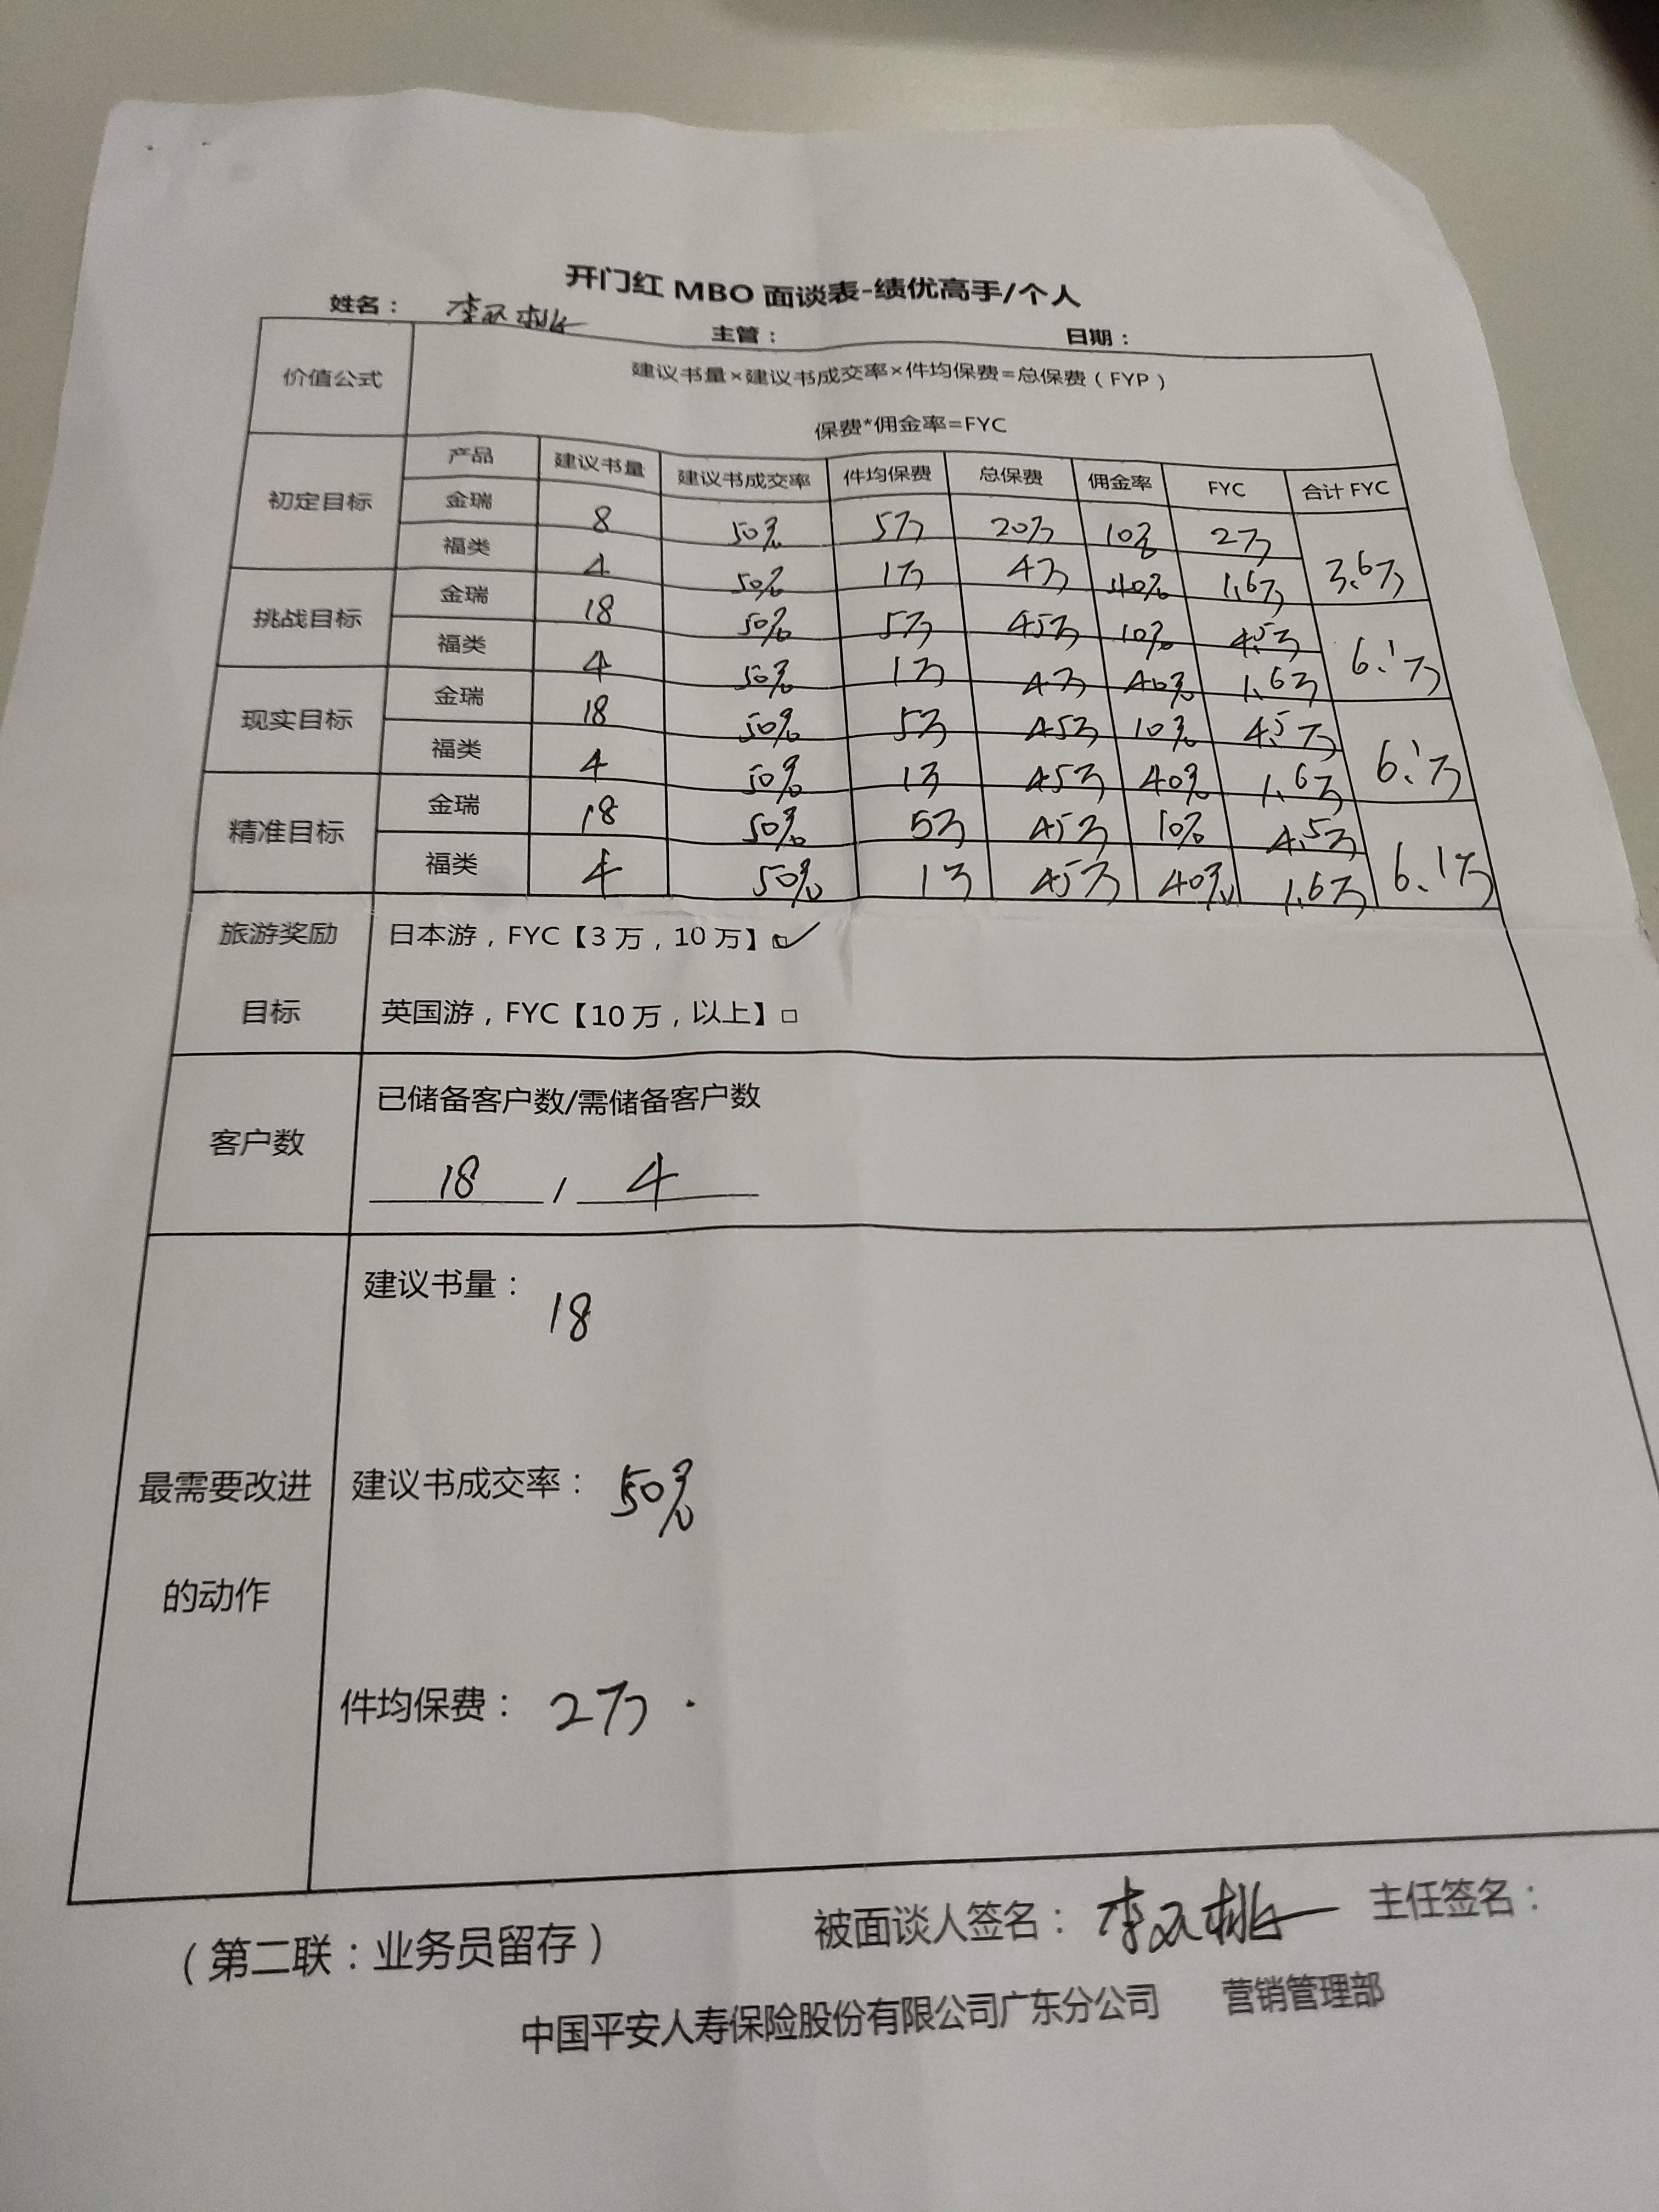 开门红 MBO 面谈表-绩优高手/个人
姓名： 李双桃 主管： 日期：
价值公式 建议书量×建议书成交率×件均保费=总保费（FYP）
保费*佣金率=FYC
产品 建议书量 建议书成交率 件均保费 总保费 佣金率 FYC 合计 FYC
初定目标 金瑞 8 50% 5万 20万 10% 2万 3.6万
福类 4 50% 1万 4万 40% 1.6万
挑战目标 金瑞 18 50% 5万 45万 10% 4.5万 6.1万
福类 4 50% 1万 4万 40% 1.6万
现实目标 金瑞 18 50% 5万 45万 10% 4.5万 6.1万
福类 4 50% 1万 45万 40% 1.6万
精准目标 金瑞 18 50% 5万 45万 10% 4.5万 6.1万
福类 4 50% 1万 45万 40% 1.6万
旅游奖励 日本游，FYC【3万，10万】□✓
目标 英国游，FYC【10万，以上】□
已储备客户数/需储备客户数
客户数
18 / 4
建议书量： 18
最需要改进 建议书成交率： 50%
的动作
件均保费： 2万.
（第二联：业务员留存） 被面谈人签名： 李双桃 主任签名：
中国平安人寿保险股份有限公司广东分公司 营销管理部